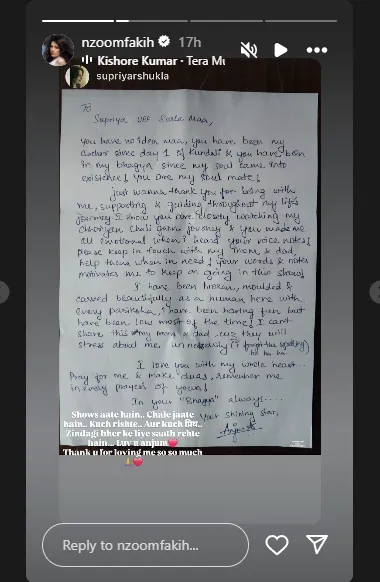 nzoomfakih 17h
Kishore Kumar · Tera Mu
supriyarshukla
To
Supriya urf Sarla Maa,
You have no idea maa, you have been my
anchor since day 1 of Kundali & you have been
in my bhagya since my soul came into
existence! You are my soul mate!
Just wanna thank you for being with
me, supporting & guiding throughout my life's
journey. I know you are closely watching my
Chhoriyan Chali Gaon journey & you made me
all emotional when I heard your voice notes!
Please keep in touch with my mom & dad
help them when in need! Your words & notes
motivates me to keep on going in this show!
I have been broken, moulded &
carved beautifully as a human here with
every pariksha, I have been having fun but
have been low most of the time! I can't
share this my mom & dad, cuz they will
stress about me, (I forgot the spelling)
ha ha ha
I love you with my whole heart...
Pray for me & make duas, remember me
in every prayers of yours!
In your "Bhagya" always....
Your shining star,
Anjum
Shows aate hain.. Chale jaate
hain.. Kuch rishte.. Aur kuch
Zindagi bher ke liye saath rehte
hain... Luv u anjum❤️
Thank u for loving me so so much
🙏❤️
Reply to nzoomfakih...